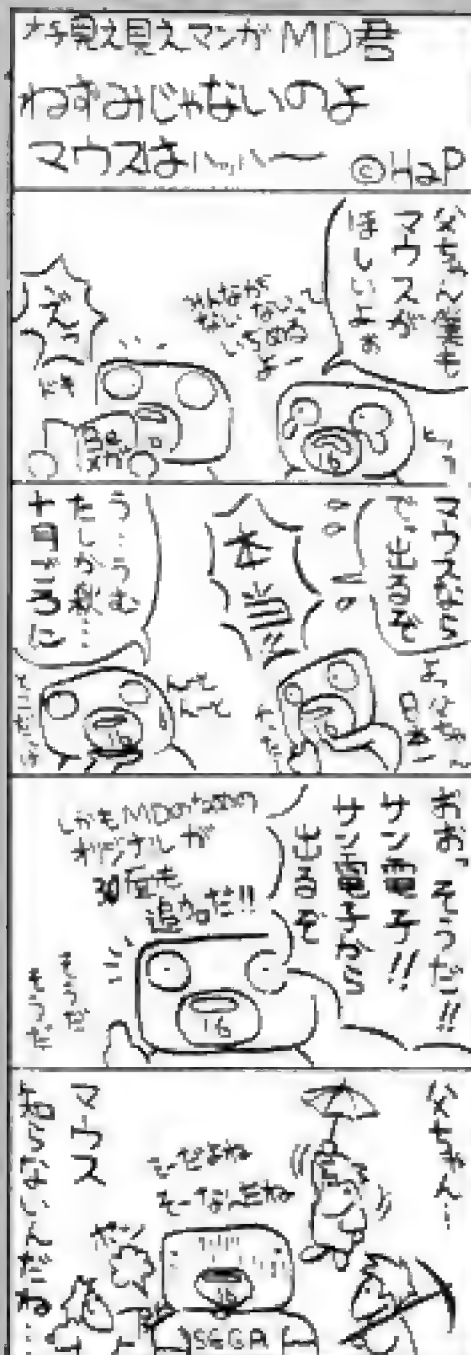 見え見えマンガMD君
ねずみじゃないのよ
マウスはハッハ〜
©HaP
父ちゃん僕も
マウスが
ほしいよぉ
みんなが
ないないって
いじめる
よー
マウスなら
でっ出るぞ
本当!!
う…うむ
たしか秋…
十月ごろに
んーと
んーと
おおっそうだ!!
サン電子!!
サン電子から
出るぞ
しかもMDのための
オリジナルが
30面も
追加だ!!
そうだ
そうだ
16
父ちゃん…
マウス
知らないんだね…
そーだよね
そーなんだよね
ポン
16
SEGA